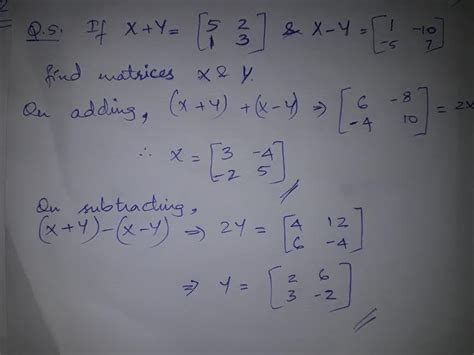 Q.5. If X+Y= [5 2 & X-Y = [1 -10
1 3] -5 7]
find matrices X & Y.
On adding, (X+Y) + (X-Y) ⇒ [6 -8 = 2X
-4 10]
∴ X = [3 -4
-2 5]
On subtracting,
(X+Y)-(X-Y) ⇒ 2Y = [4 12
6 -4]
⇒ Y = [2 6
3 -2]